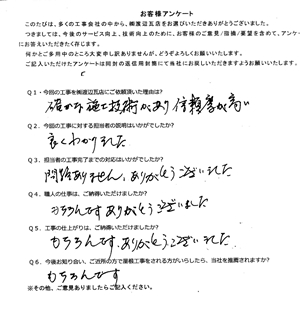 お客様アンケート
このたびは、多くの工事会社の中から、㈱渡辺瓦店をお選びいただきありがとうございました。
つきましては、今後のサービス向上と、技術向上のために、お客様のご意見/指摘/要望を含めて、アンケート
にお答えいただきたく存じます。
何かとご多用中のところ大変申し訳ありませんが、どうぞよろしくお願いいたします。
ご記入いただけたアンケートは同封の返信用封筒にて当社にお戻しいただきますようお願いいたします。
Q1・今回の工事を㈱渡辺瓦店にご依頼頂いた理由は?
確かな施工技術があり 信頼度が高い
Q2・今回の工事に対する担当者の説明はいかがでしたか?
良くわかりました
Q3．担当者の工事完了までの対応はいかがでしたか?
問題ありません。ありがとうございました
Q4．職人の仕事は、ご納得いただけましたか?
もちろんです ありがとうございました
Q5．工事の仕上がりは、ご納得いただけましたか?
もちろんです。ありがとうございました。
Q6．今後お知り合い、ご近所の方で屋根工事をされる方がいらしたら、当社を推薦されますか?
もちろんです
※その他、ご意見ありましたらご記入ください。